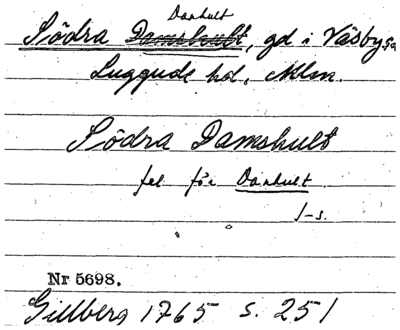 Danhult
Södra Damshult, gd i Väsby sn
Luggude hd, Mlm.
Södra Damshult
fel för Danhult
1-s.
Nr 5698.
Gillberg 1765 s. 251